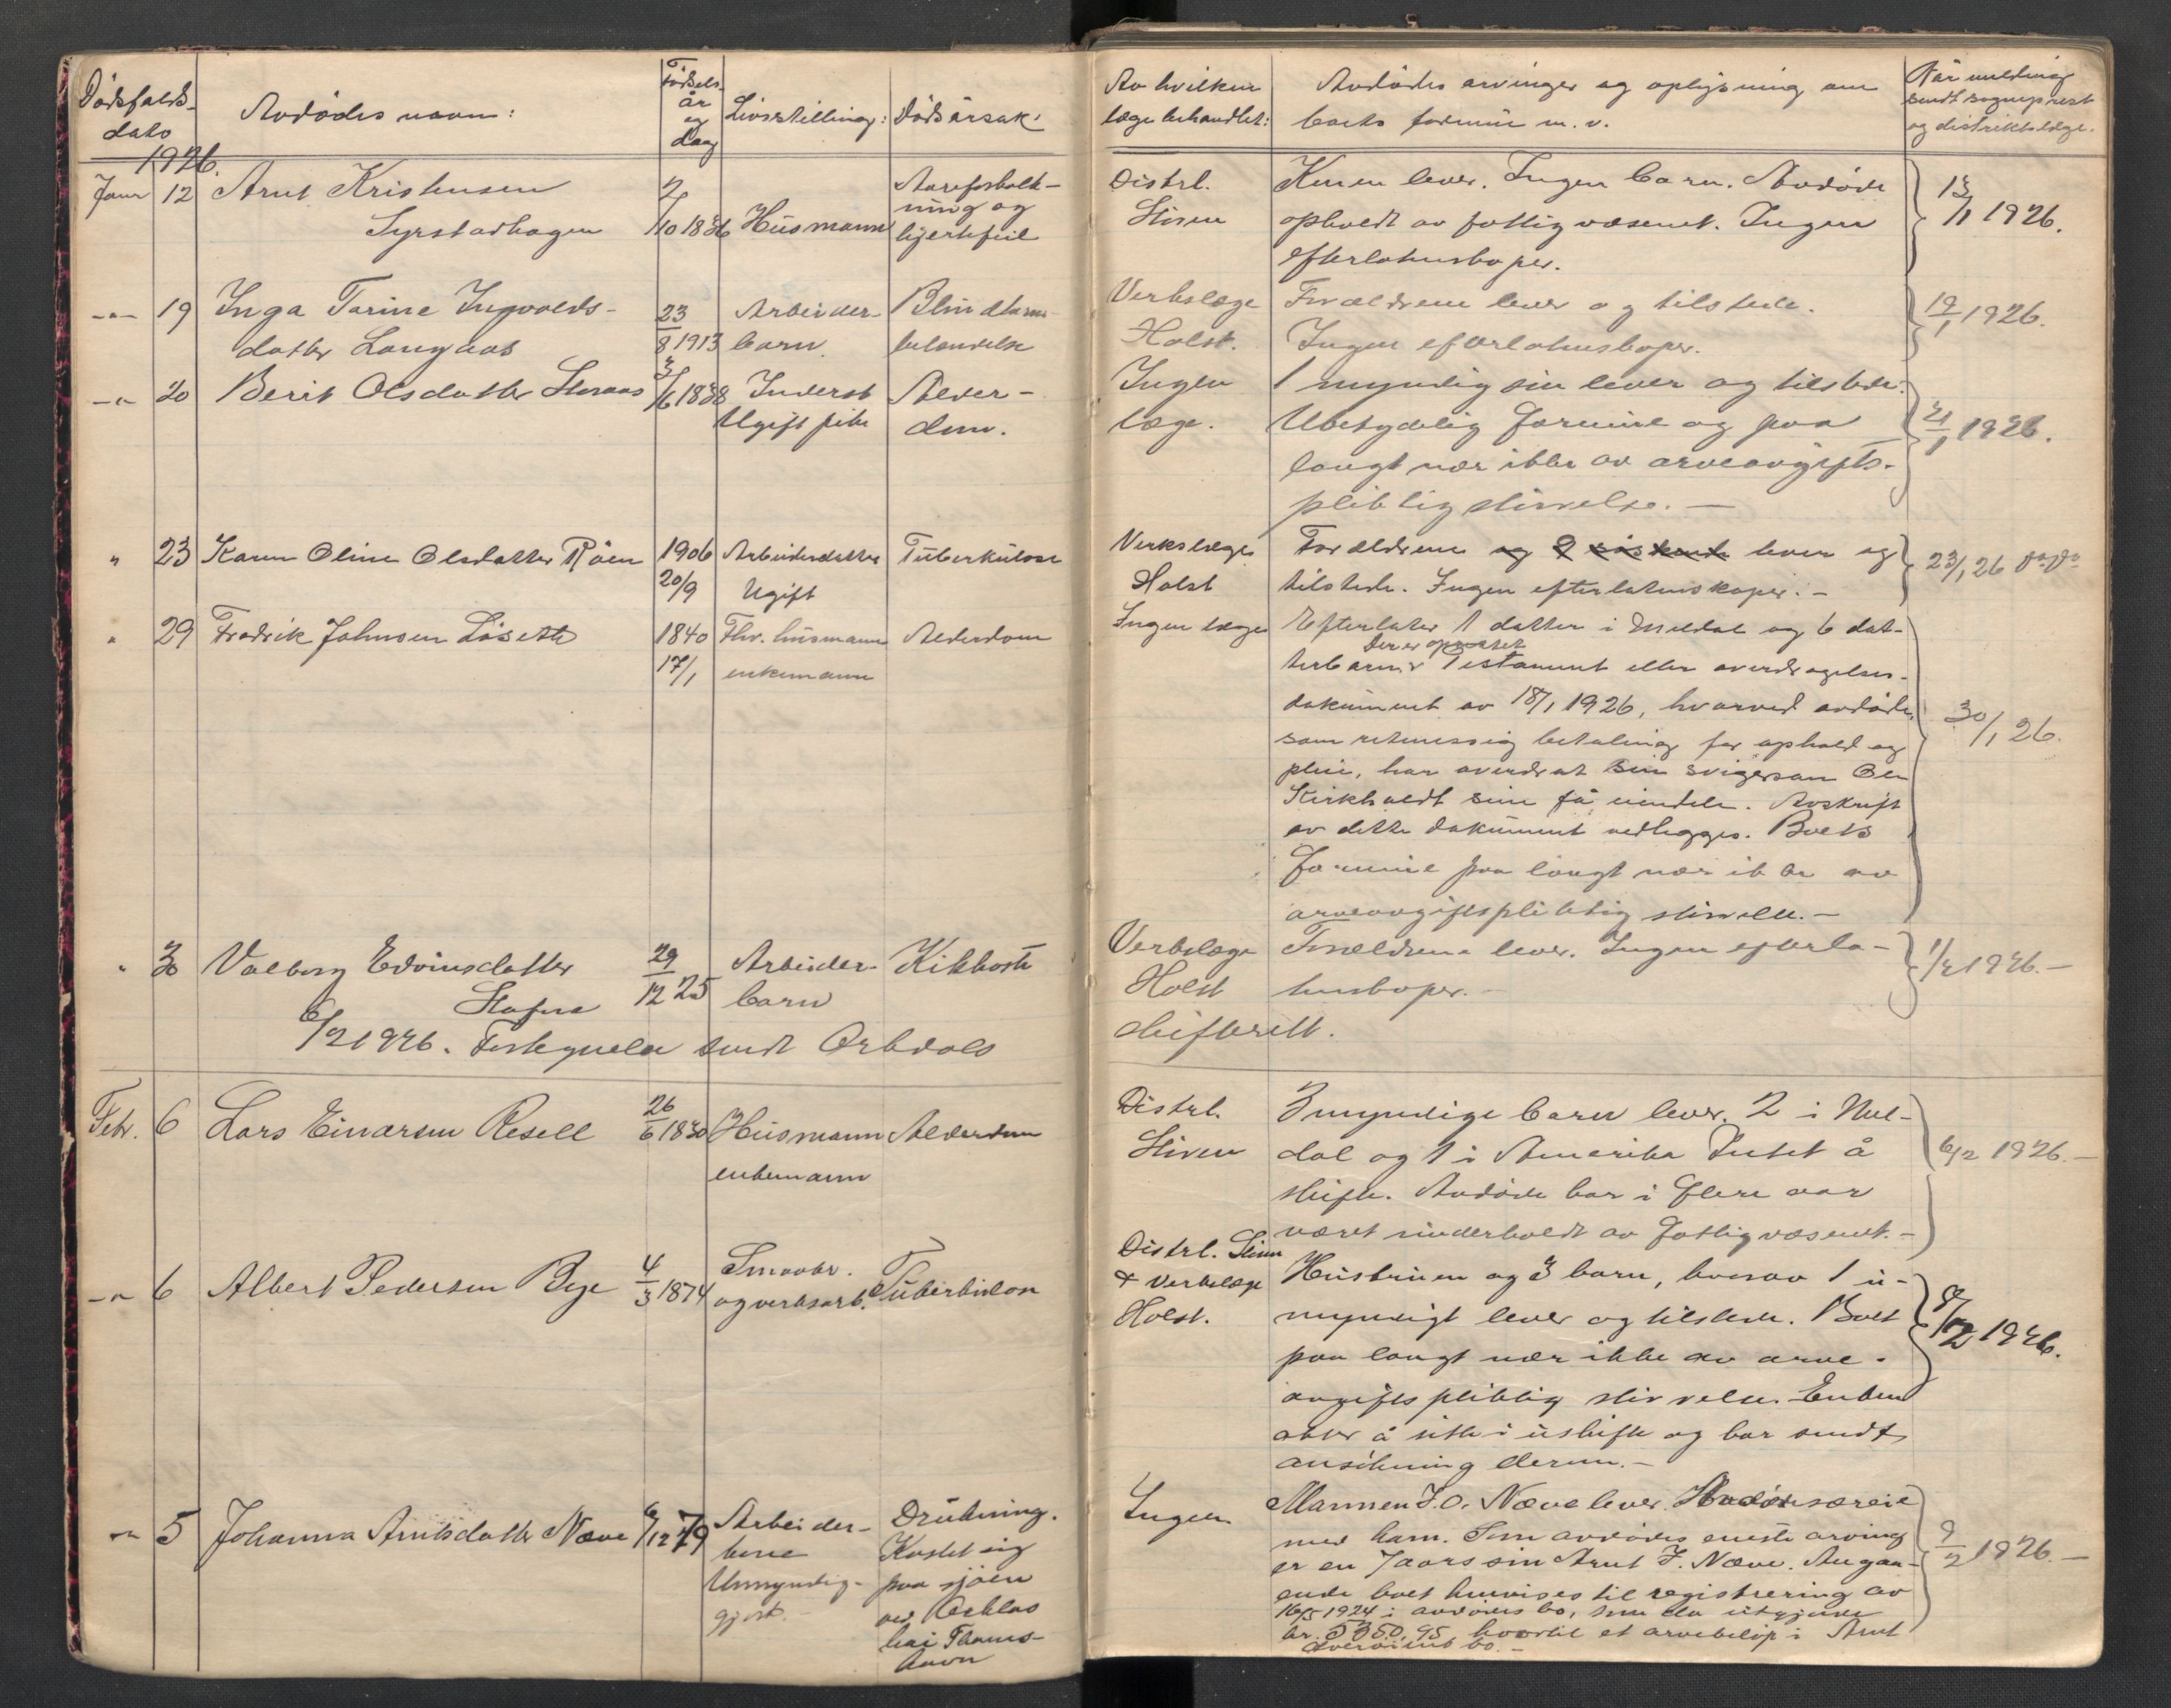 Dödsfalds-
dato
Avdödes navn:
Födsels-
år
og
dag
Livsstilling:
Dödsårsak:
1926.
Janr 12 Arnt Kristensen
Syrstadhagen
2/10 1836
Husmann
Aareforkalk-
ning og
hjertefeil
-"- 19 Inga Tarine Ingvalds-
datter Langaas
23/8 1913
Arbeider-
barn
Blindtarm-
betendelse
-"- 20 Berit Olsdatter Storaas
3/6 1838
Inderst
Ugift pike
Alder-
dom.
" 23 Karen Oline Olsdatter Röen
1906
20/9
Arbeiderdatter
Ugift
Tuberkulose
" 29 Fredrik Johnsen Löseth
1840
17/1
Fhv. husmann
enkemann
Alderdom
" 30 Valborg Edvinsdatter
Stafne
29/12 25
Arbeider-
barn
Kikhoste
6/2 1926. Fortegnelse sendt Orkdals
Febr. 6 Lars Einarsen Resell
26/6 1830
Husmann
enkemann
Alderdom
-"- 6 Albert Pedersen Bye
4/3 1874
Smaabr.
og verksarb.
Tuberkulose
-"- 5 Johanna Arntsdatter Næve
6/12 79
Arbeider-
kone
Umyndig-
gjort.
Drukning.
Kastet sig
paa sjöen
ved Orklas
kai Thams-
havn
Av hvilken
læge behandlet:
Avdödes arvinger og oplysning om
boets formue m. v.
Når melding
sendt sogneprest
og distriktslæge.
Distrl.
Stören
Konen lever. Ingen barn. Avdöde
opholdt av fattigvæsenet. Ingen
efterlatenskaper.
13/1 1926.
Verkslæge
Holst.
Forældrene lever og tilstede.
Ingen efterlatenskaper.
19/1 1926.
Ingen
læge.
1 myndig sön lever og tilstede.
Ubetydelig formue og paa
langt nær ikke av arveavgifts-
pliktig störrelse. —
21/1 1926.
Verkslæge
Holst
Forældrene og 2 söskende lever og
tilstede. Ingen efterlatenskaper. -
23/1 26
Ingen læge
Efterlater 1 datter i Meldal og 6 dat-
Der er oprettet
terbarn. Testament eller overdragelses-
dokument av 18/1 1926, hvorved avdöde,
som retmessig betaling for ophold og
pleie, har overdrat sin svigersön Ole
Kirkholdt sine få eiendele. Avskrift
av dette dokument vedlegges. Boets
formue paa langt nær ikke av
arveavgiftspliktig störrelse. -
30/1 26.
Verkslæge
Holst
Forældrene lever. Ingen efterla-
tenskaper. -
1/2 1926. -
skifterett.
Distrl.
Stören
3 myndige barn lever. 2 i Mel-
dal og 1 i Amerika Intet å
skifte. Avdöde har i flere aar
været underholdt av fattigvæsenet. -
6/2 1926. -
Distrl. Stören
& Verkslæge
Holst.
Hustruen og 3 barn, hvorav 1 u-
myndigt lever og tilstede. Boet
paa langt nær ikke av arve-
avgiftspliktig störrelse. Enken
akter å sitte i uskifte og har sendt
ansökning derom. -
8/2 1926.
Ingen
Mannen J. O. Næve lever. Avdöde særeie
med ham. Som avdödes eneste arving
er en 7 aars sön Arnt J. Næve. Angaa-
ende boet henvises til registrering av
16/5 1924 i avdödes bo, som da utgjorde
kr. 5350,95, hvortil et arvebelöp i Arnt
bo. -
9/2 1926. —